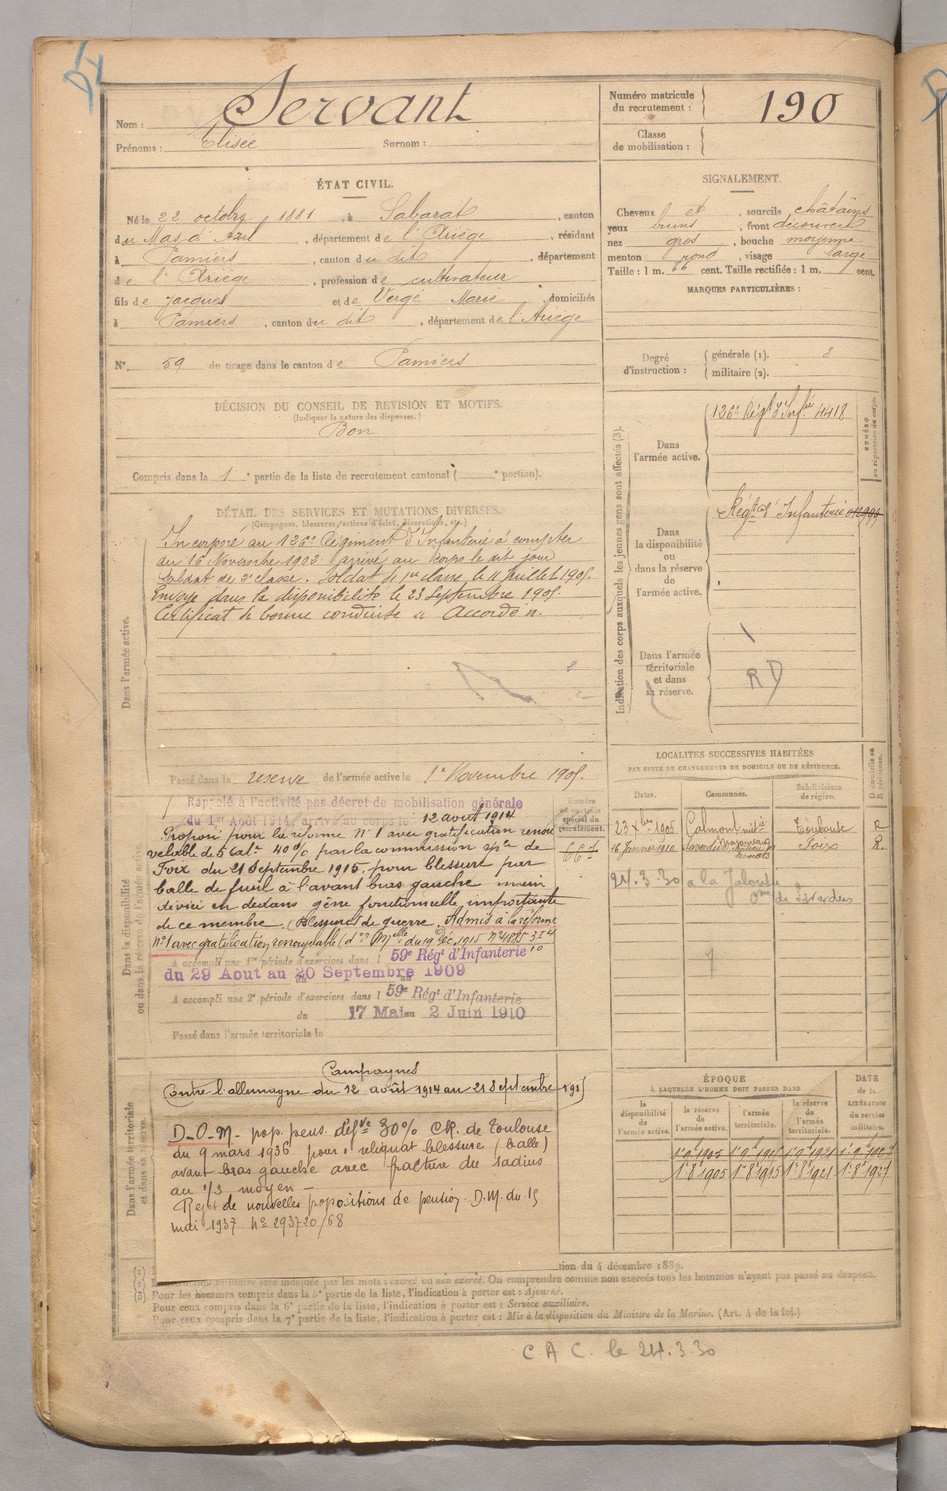 Nom : Servant
Prénoms : Elisée Surnom :
Numéro matricule du recrutement : 190
Classe de mobilisation :
ÉTAT CIVIL.
Né le 22 octobre 1881, à Sabarat, canton
du Mas d'Azil, département de l'Ariège, résidant
à Pamiers, canton du dit, département
de l'Ariège, profession de cultivateur
fils de Jacques et de Vergé Marie domiciliés
à Pamiers, canton du dit, département de l'Ariège
N° 59 de tirage dans le canton de Pamiers
SIGNALEMENT.
Cheveux et, sourcils châtains
yeux bruns, front découvert
nez gros, bouche moyenne
menton rond, visage large
Taille : 1 m. 66 cent. Taille rectifiée : 1 m. cent.
MARQUES PARTICULIÈRES :
Degré d'instruction : générale (1). 3
militaire (2).
DÉCISION DU CONSEIL DE REVISION ET MOTIFS.
(Indiquer la nature des dispenses.)
Bon
Compris dans la 1e partie de la liste du recrutement cantonal ( e portion).
DÉTAIL DES SERVICES ET MUTATIONS DIVERSES.
(Campagnes, blessures, actions d'éclat, décorations, etc.)
Dans l'armée active.
Incorporé au 126e Régiment d'Infanterie à compter
du 16 Novembre 1902 arrivé au corps le dit jour
soldat de 2e classe. Soldat de 1re classe, le 11 juillet 1905.
Envoyé dans la disponibilité le 23 Septembre 1905.
Certificat de bonne conduite "Accordé".
Passé dans la réserve de l'armée active le 1er Novembre 1905.
Indication des corps auxquels les jeunes gens sont affectés (3).
Dans l'armée active.
126e Régt d'Infie 4418
Dans la disponibilité ou dans la réserve de l'armée active.
Régt d'Infanterie
Dans l'armée territoriale et dans sa réserve.
RD
Dans la disponibilité ou dans la réserve de l'armée active
Rappelé à l'activité par décret de mobilisation générale
du 1er Août 1914, arrivé au corps le 12 août 1914
Proposé pour la réforme N° 1 avec gratification renou
velable de 5 cat° 40% par la commission sple de
Foix du 21 Septembre 1915, pour blessure par
balle de fusil à l'avant bras gauche main
déviée en dedans gêne fonctionnelle importante
de ce membre. (Blessure de guerre. Admis à la réforme
n° 1 avec gratification renouvelable (don Melle du 19 Déc. 1915 N° 4885 3I4
A accompli une 1re période d'exercices dans l 59e Régt d'Infanterie
du 29 Aout au 20 Septembre 1909
A accompli une 2e période d'exercices dans l 59e Régt d'Infanterie
du 17 Mai au 2 Juin 1910
Passé dans l'armée territoriale le
Numéro au contrôle spécial du recrutement.
LOCALITÉS SUCCESSIVES HABITÉES
PAR SUITE DE CHANGEMENTS DE DOMICILE OU DE RÉSIDENCE.
Dates. Communes. Subdivisions de région. D domicile ou R résidence.
23 Xbre 1905 Calmont Toulouse R
16 Janvier 1912 Foix R.
24.3.30
Dans l'armée territoriale et dans sa réserve.
Campagnes
Contre l'allemagne du 12 août 1914 au 21 Septembre 1915
D-O-M. prop. pens. défve 30% C.R. de Toulouse
du 9 mars 1936 pour reliquat blessure (balle)
avant bras gauche avec fracture du radius
au 1/3 moyen –
Rejet de nouvelles propositions de pension. D.M. du 15
mai 1937 N° 293720/68
ÉPOQUE
À LAQUELLE L'HOMME DOIT PASSER DANS
DATE de la LIBÉRATION du service militaire.
la disponibilité de l'armée active. la réserve de l'armée active. l'armée territoriale. la réserve de l'armée territoriale.
1er 8 1905 1er 8 1915 1er 8 1921 1er 8 1927
(1)
(2)
(3)
tion du 4 décembre 1889.
militaire sera indiquée par les mots : exercé ou non exercé. On comprendra comme non exercés tous les hommes n'ayant pas passé au drapeau.
Pour les hommes compris dans la 5e partie de la liste, l'indication à porter est : Ajourné.
Pour ceux compris dans la 6e partie de la liste, l'indication à poster est : Service auxiliaire.
Pour ceux compris dans la 7e partie de la liste, l'indication à porter est : Mis à la disposition du Ministre de la Marine. (Art. 4 de la loi.)
C A C. le 24.3.30